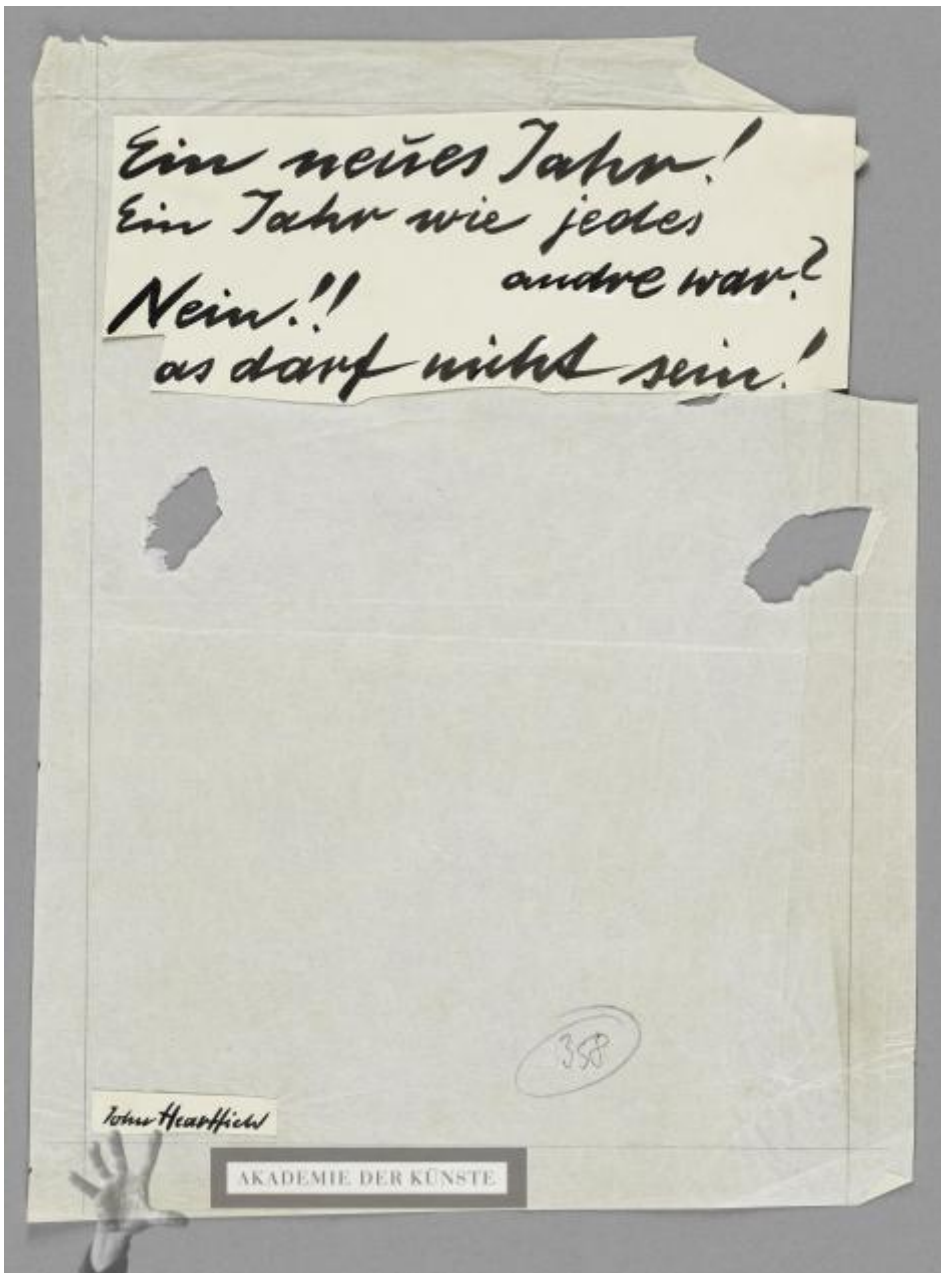 Ein neues Jahr!
Ein Jahr wie jedes
andre war?
Nein!!
as darf nicht sein!
358
John Heartfield
AKADEMIE DER KÜNSTE